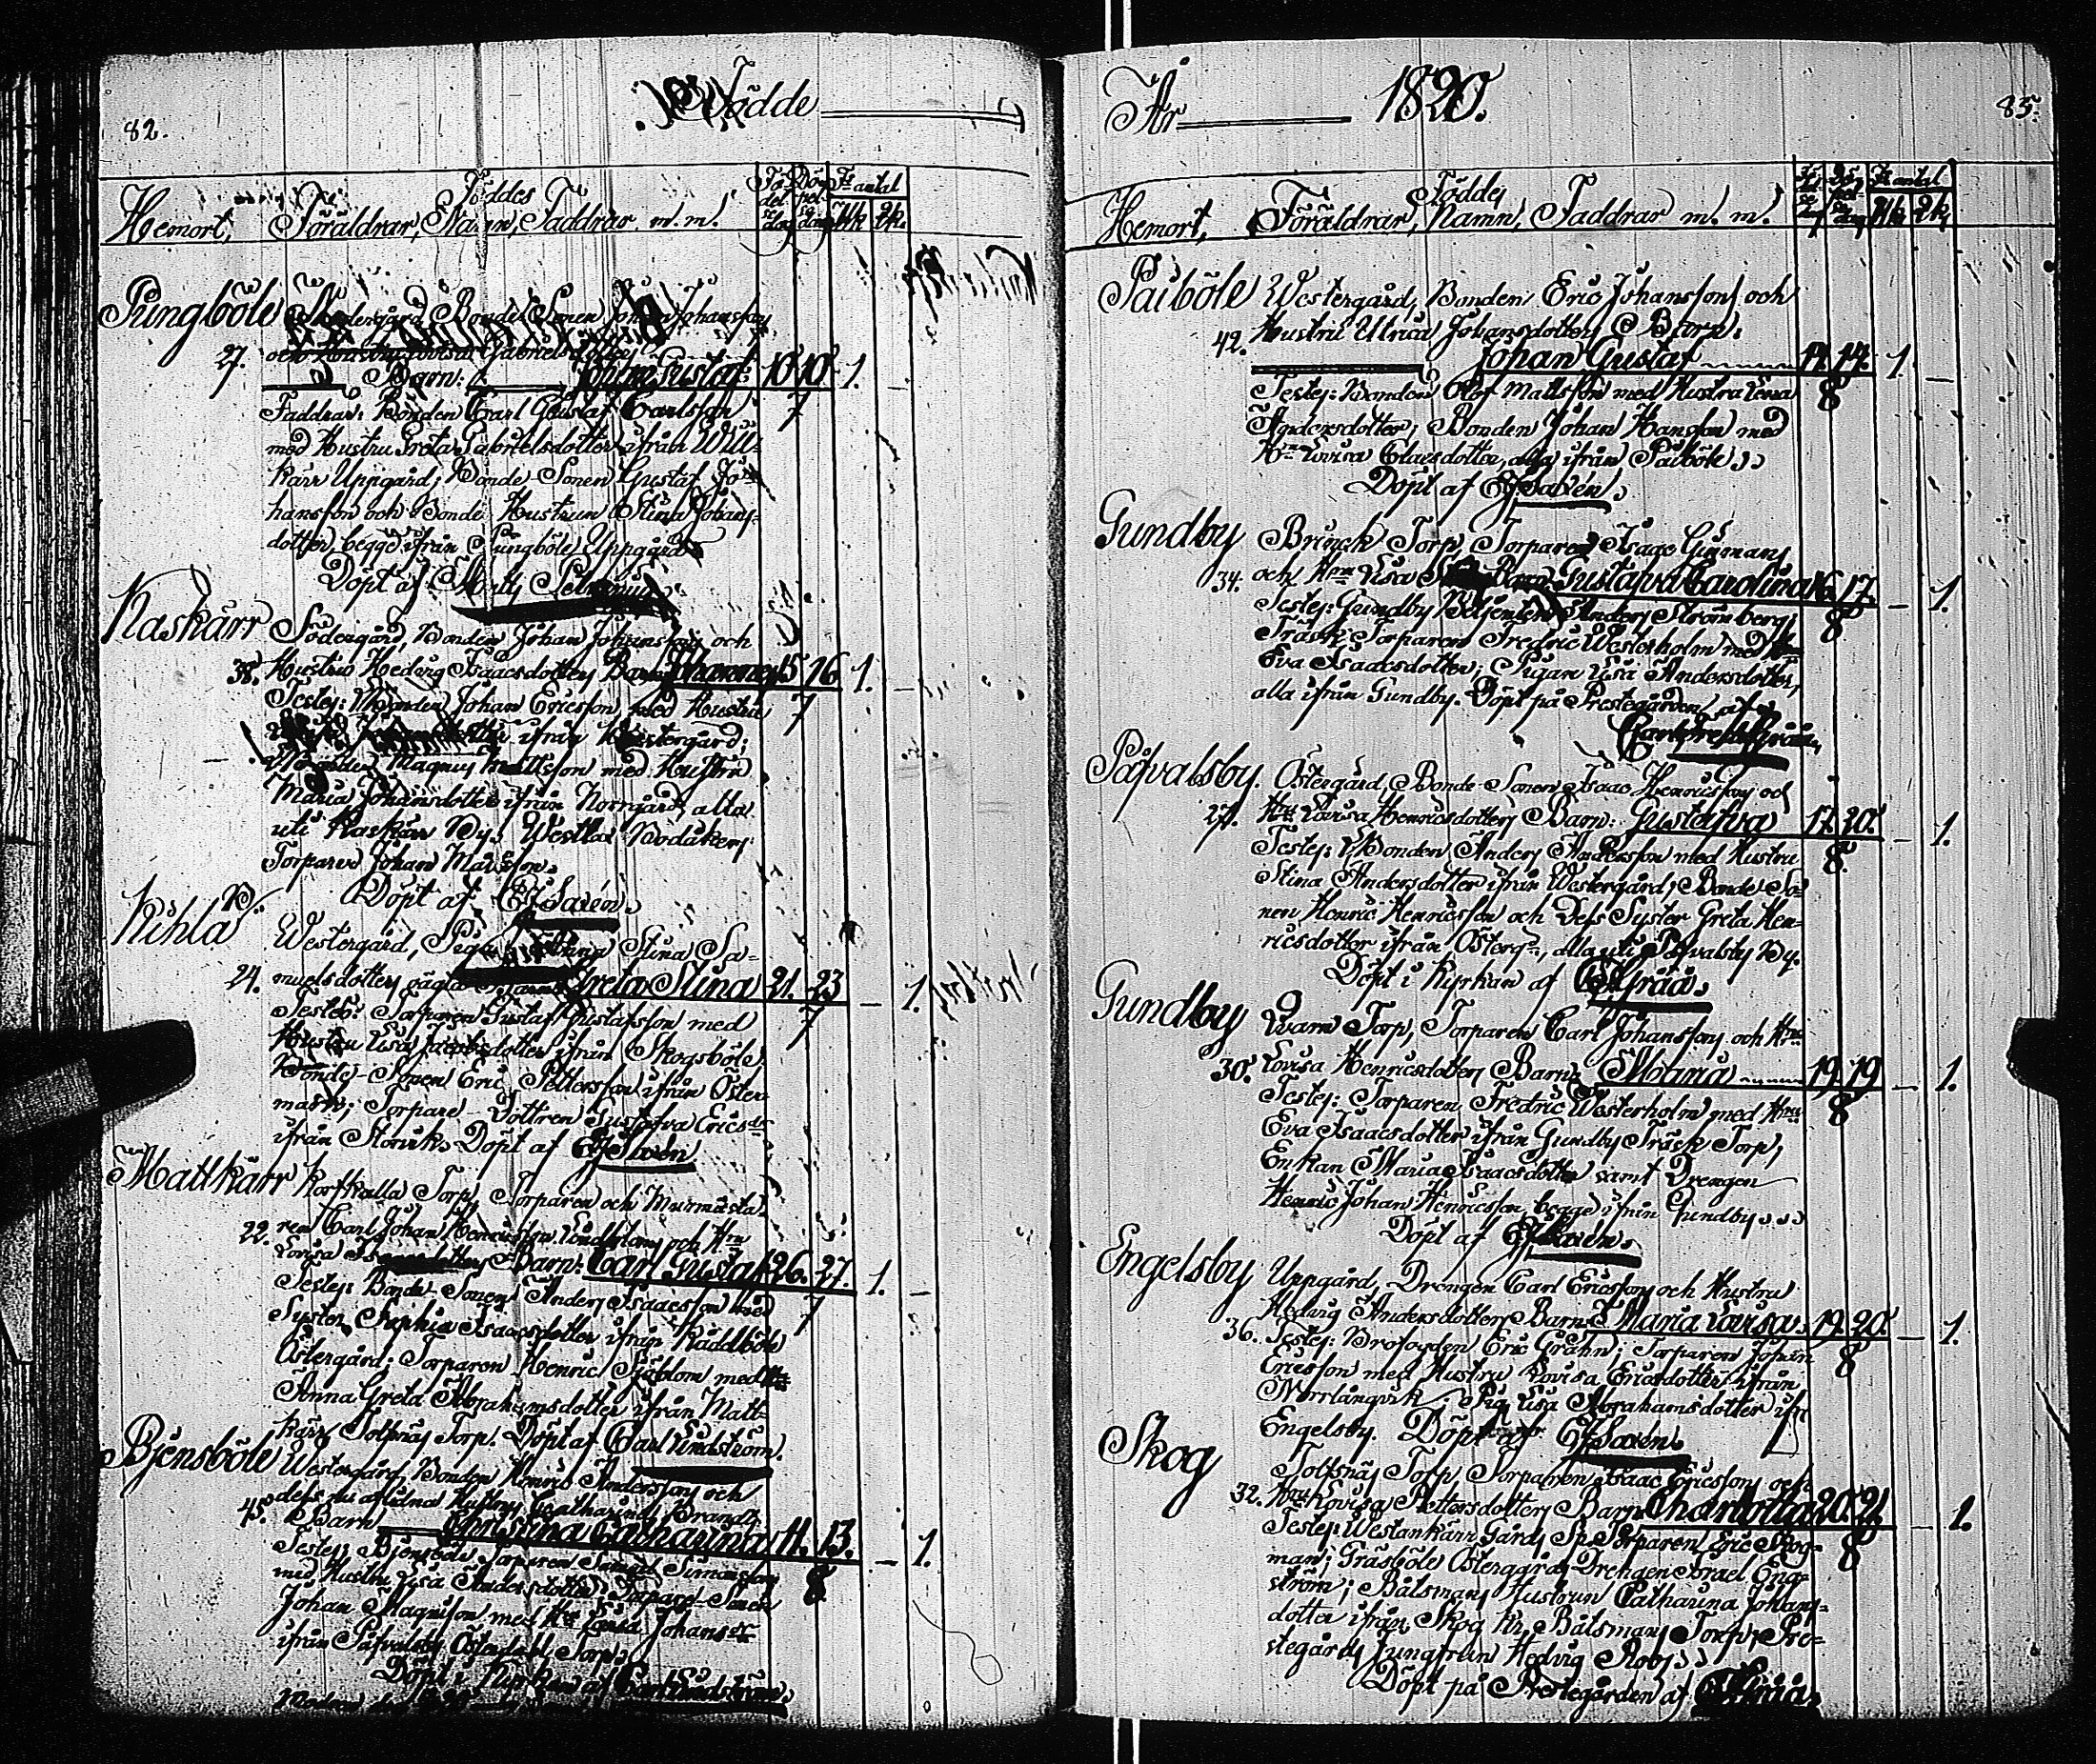 82.
Födde
Hemort, Föräldrar, Föddes Namn, Faddrar m. m.
Fö- del- se dag
Döp- el- se dag
Fs antal
Mk Qk.
Pungböle Bonde-Sonen Johan Johansson
27. och Hustru Lovisa Gabrielsdotters
Barn: Johan Gustaf 10 10 1. –
7
Faddrar: Bonden Carl Gustaf Carlsson
med Hustru Greta Gabrielsdotter ifrån Will-
kärr Uppgård; Bonde-Sonen Gustaf Jo-
hansson och Bonde Hustrun Stina Johans-
dotter, begge ifrån Pungböle Uppgård
Döpt af
Naskärr Södergård, Bonden Johan Johanssons och
38. Hustrus Hedvig Isaacsdotters Barn Johannes 15 16 1. –
Testes: Bonden Johan Ericsson med Hustru 7
ifrån Westergård;
Bonden Magnus Mattsson med Hustru
Maria Johansdotter ifrån Norrgård, alla
uti Naskärr By. Westlax Bodåkers
Torparen Johan
Döpt af E J Saxén.
Kihla Westergård, Pigan Anna Stina Sa-
24. muelsdotters oägta Barn Greta Stina 21. 23 – 1.
Testes: Torparen Gustaf Gustafsson med 7
Hustru Lisa Jacobsdotter ifrån Skogsböle;
Bonde-Sonen Eric Pettersson ifrån Öster-
mark; Torpare-Dottren Gustafva Ericsdr
ifrån Storvik. Döpt af E J Saxén
Mattkärr Korskalla Torp, Torparen och Murmästa-
22. ren Carl Johan Henricsson Lindbloms och Hru
Lovisa Barn: Carl Gustaf 26. 27. 1. –
Testes: Bonde-Sonen Anders Isaacsson med 7
Syster Sophia Isaacsdotter ifrån Räddböle
Östergård; Torparen Henric Sjöblom med Hru
Anna Greta Abrahamsdotter ifrån Matt-
kärr Tolfsnäs Torp. Döpt af Carl Lindström.
Bjensböle Westergård, Bonden Henric Anderssons och
45. dess nu aflidna Hustrus Catharina Brandts
Barn Christina Catharina 11. 13. – 1.
Testes: Bjensböle Torparen Samuel Simonsson 8.
med Hustru Lisa Andersdotter; Torpare-Sonen
Johan Magnusson med Hru Lovisa Johansdr
ifrån Påfvalsby Östergård Torp.
Döpt i Kyrkan af Carl Lindström.
År 1820.
85.
Hemort, Föräldrar, Föddes Namn, Faddrar m. m.
Fs antal
Mk Qk
Paiböle Westergård, Bonden Eric Johanssons och
42. Hustrus Ulrica Johansdotters Barn:
Johan Gustaf 14. 14. 1. –
Testes: Bonden Olof Mattsson med Hustru Lena 8
Andersdotter; Bonden Johan Hansson med
Hru Lovisa Claesdotter, alla ifrån Paiböle
Döpt af E J Saxén.
Gundby Brinck Torp, Torparen Isaac Ginmans
34. och Hrus Lisa Barn Gustafva Carolina 16. 17. – 1.
Testes: Gundby Betjenten Anders Strömberg; 8
Träsk Torparen Fredric Westerholm med Hru
Eva Isaacsdotter; Pigan Lisa Andersdotter,
alla ifrån Gundby. Döpt på Prestegården af
Påfvalsby. Östergård, Bonde-Sonen Isaac Henricssons och
27. Hrus Lovisa Henricsdotters Barn: Gustafva 17. 20. – 1.
Testes: Bonden Anders Andersson med Hustru 8.
Stina Andersdotter ifrån Westergård; Bonde-So-
nen Henric Henricsson och Dess Syster Greta Hen-
ricsdotter ifrån Österg:d, alla uti Påfvalsby By.
Döpt i Kyrkan af
Gundby Qvarn Torp, Torparen Carl Johanssons och Hrus
30. Lovisa Henricsdotters Barn: Maria 19. 19. – 1.
Testes: Torparen Fredric Westerholm med Hru 8
Eva Isaacsdotter ifrån Gundby Träsk Torp;
Enkan Maria Isaacsdotter samt Drengen
Henric Johan Henricsson, begge ifrån Gundby
Döpt af E J Saxén.
Engelsby Uppgård, Drengen Carl Ericssons och Hustrus
36. Hedvig Andersdotters Barn: Maria Lovisa. 19. 20. – 1.
Testes: Brofogden Eric Grahn; Torparen Johan 8
Ericsson med Hustru Lovisa Ericsdotter ifrån
Norrlångvik; Pig. Lisa Abrahamsdotter ifr.
Engelsby. Döpt af E J Saxén.
Skog Tolfsnäs Torp, Torparen Isaac Ericssons och
32. Hrus Lovisa Pettersdotters Barn: Charlotta 20. 21. – 1.
Testes: Westankärr Gårds Sp. Torparen Eric Skog- 8
man; Gräsböle Östergårds Drengen Israel Eng-
ström; Båtsmans Hustrun Catharina Johans-
dotter ifrån Skog Kr. Båtsmans Torp; Pre-
stegårds Jungfrun Hedvig
Döpt på Prestegården af